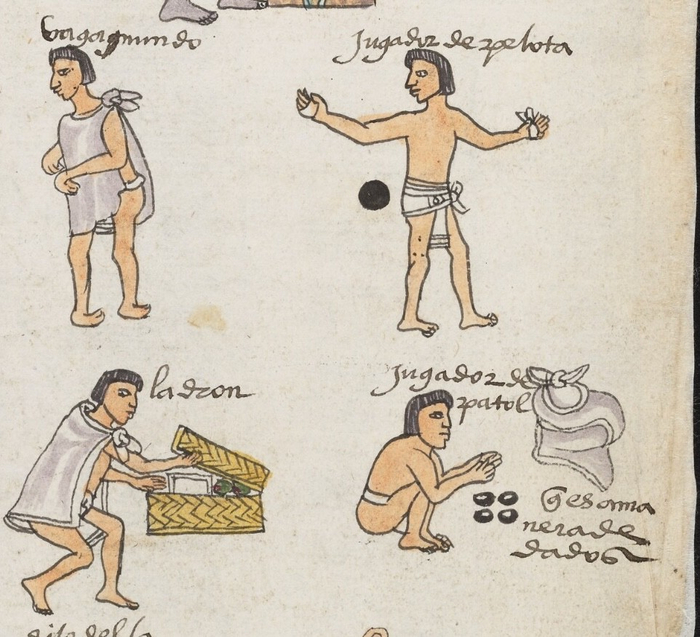 bagamundo
Jugador de pelota
ladron
Jugador de
patol
q es a ma
nera de
dados